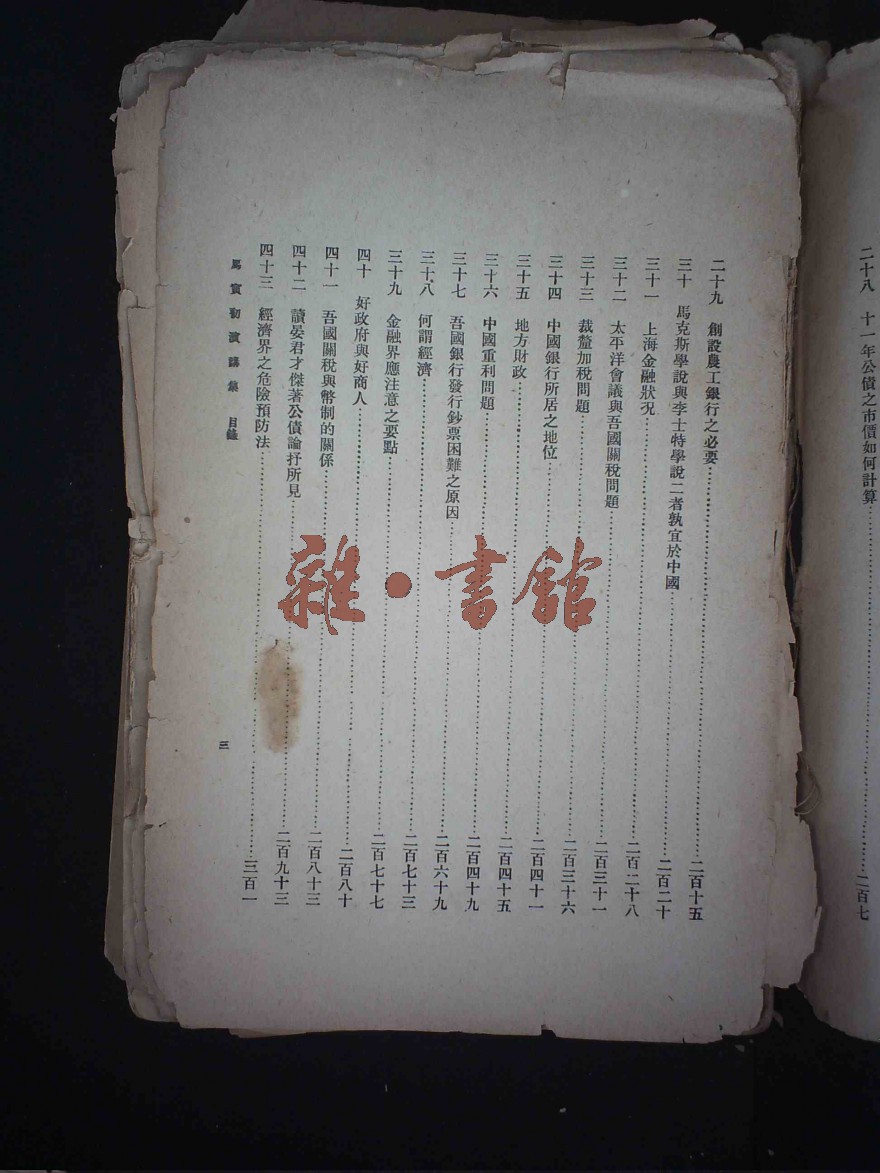 二十八　十一年公債之市價如何計算⋯⋯二百七
二十九　創設農工銀行之必要⋯⋯二百十五
三十　馬克斯學說與李士特學說二者孰宜於中國⋯⋯二百二十
三十一　上海金融狀况⋯⋯二百二十八
三十二　太平洋會議與吾國關稅問題⋯⋯二百三十一
三十三　裁釐加稅問題⋯⋯二百三十六
三十四　中國銀行所居之地位⋯⋯二百四十一
三十五　地方財政⋯⋯二百四十五
三十六　中國重利問題⋯⋯二百四十九
三十七　吾國銀行發行鈔票困難之原因⋯⋯二百六十九
三十八　何謂經濟⋯⋯二百七十三
三十九　金融界應注意之要點⋯⋯二百七十七
四十　好政府與好商人⋯⋯二百八十
四十一　吾國關稅與幣制的關係⋯⋯二百八十三
四十二　讀晏君才傑著公債論抒所見⋯⋯二百九十三
四十三　經濟界之危險預防法⋯⋯三百一
馬寅初演講集　目錄　三
雜·書館